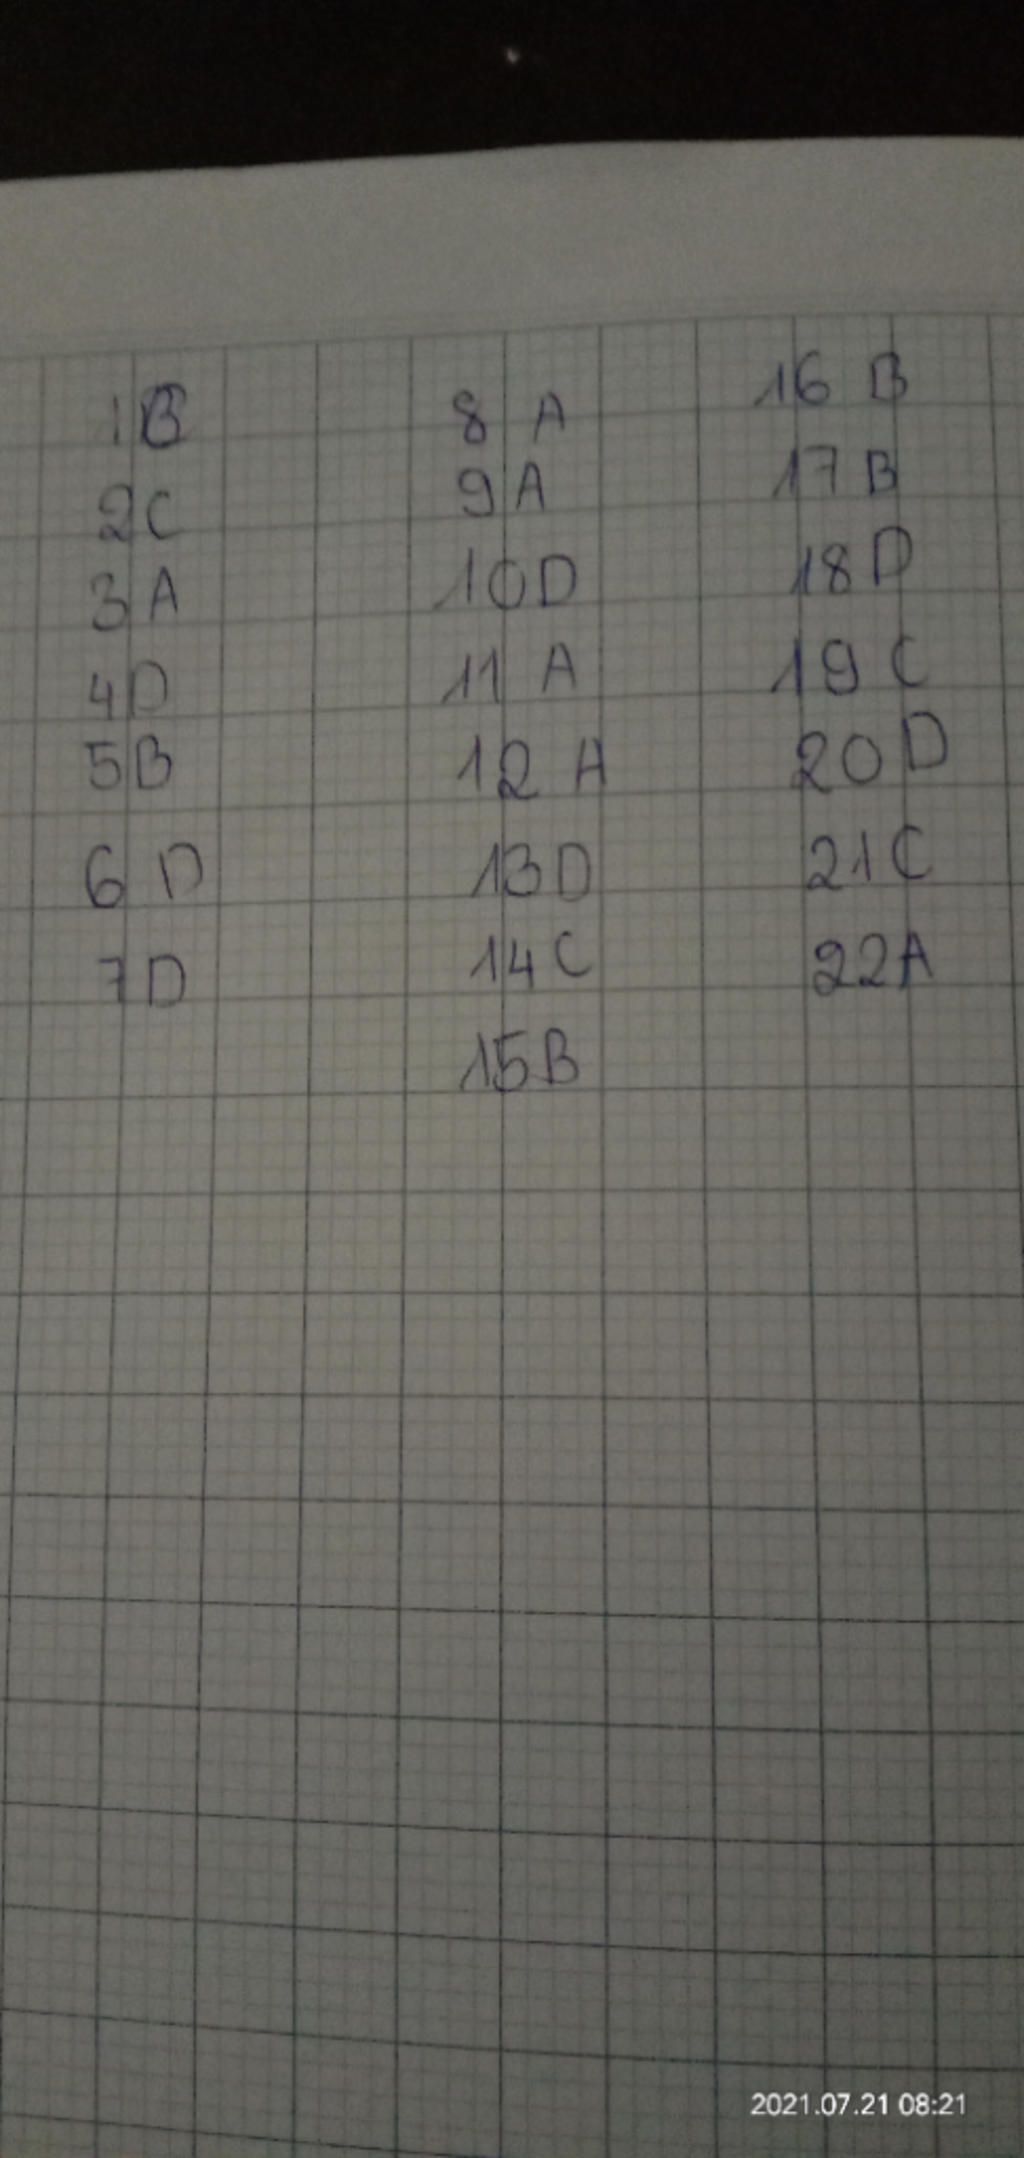 1 B
2 C
3 A
4 D
5 B
6 D
7 D
8 A
9 A
10 D
11 A
12 A
13 D
14 C
15 B
16 B
17 B
18 D
19 C
20 D
21 C
22 A
2021.07.21 08:21